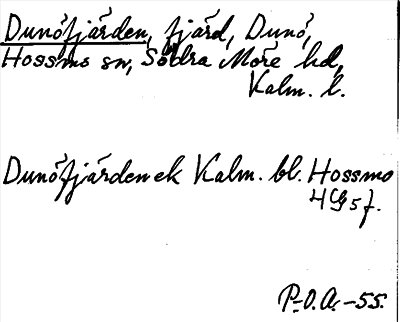 Dunöfjärden, fjärd, Dunö,
Hossmo sn, Södra Möre hd,
Kalm. l.
Dunöfjärden ek Kalm. bl. Hossmo
4G 5f.
P.O.A. -55.